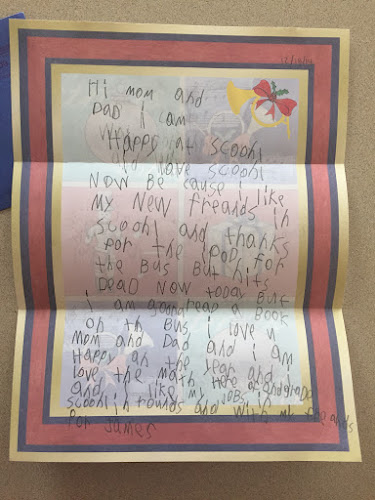 Hi mom and
DaD i am
Happy at scoohl
and love scoohl
Now Be cause i like
My New freands in
scoohl and thanks
for the ipod for
the Bus But hits
DeaD Now today But
i am gonna read a Book
on th Bus i love u
Mom and DaD and i am
Happy an the year and i
love the math Here
and i like my joBs in
scoohl in rounds and with my freands
for James